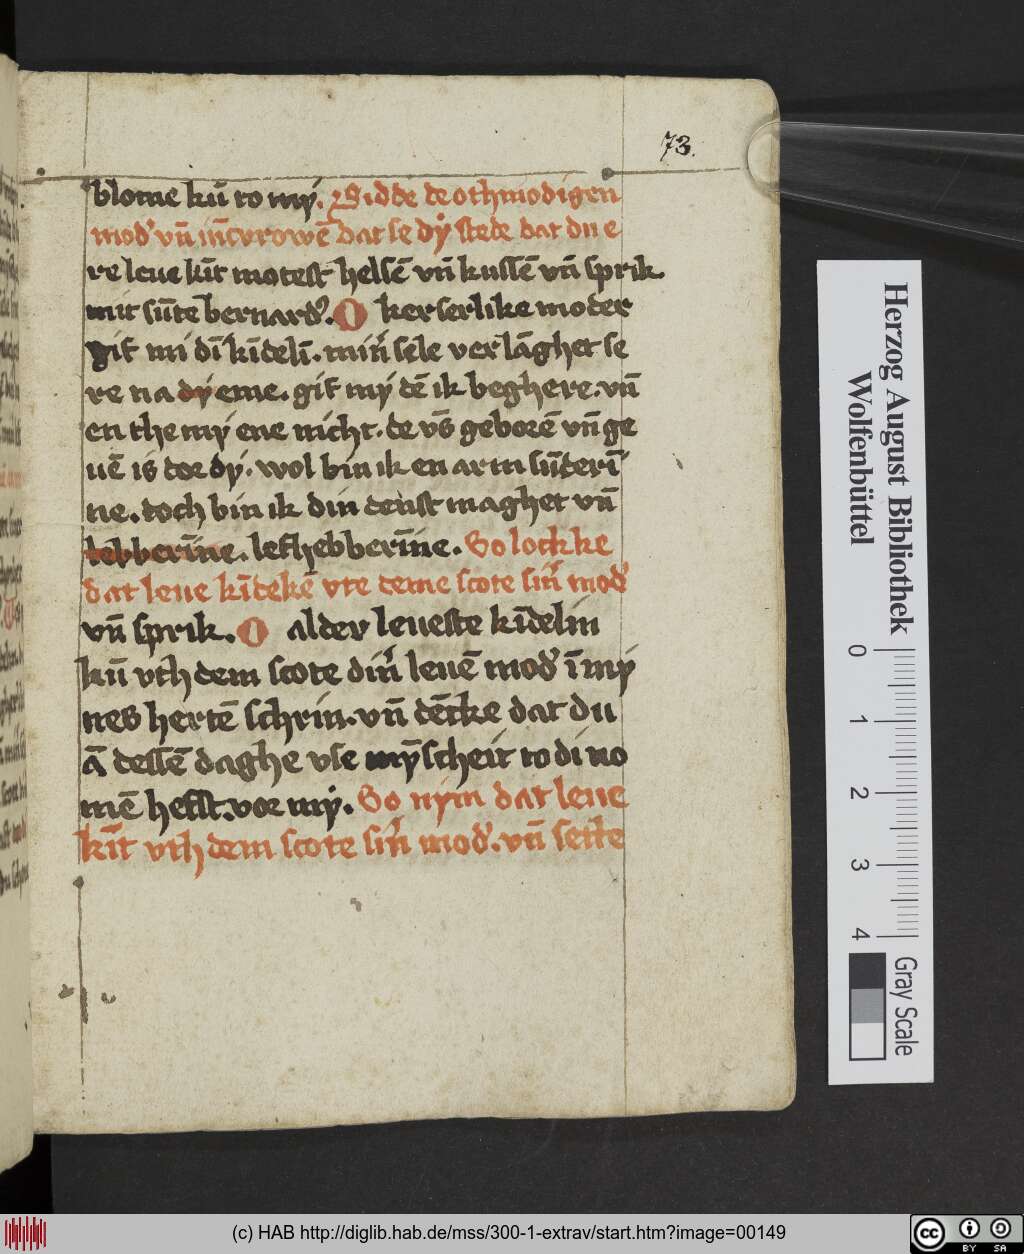 73.
blome kū to my. Bidde de othmodigen
mod' vn̄ iūcvrowē dat se dy stede dat du e
re leue kīt motest helsē vn̄ kussē vn̄ sprik.
mit sūte bernard'. O keyserlike moder
gif mi dī kīdelī. min̄ sele vorlāghet se
re na dyeme. gif my dē ik beghere. vn̄
en themy ene nicht. de vs̄ geborē vn̄ ge
uē is dor dy. wol bin ik en arm sūderī
ne. doch bin ik din denst maghet vn̄
lebberīne. lefhebberīne. So lockke
dat leue kīdekē vte deme scote sin̄ mod'
vn̄ sprik. O alder leueste kīdelin
kū vth dem scote din̄ leuē mod' ī my
nes hertē schrin. vn̄ dēcke dat du
ā dessē daghe vse mȳscheit to di no
mē hefst. vor my. So nym dat leue
kīt vth dem scote sin̄ mod'. vn̄ sette
Herzog August Bibliothek
Wolfenbüttel
0 1 2 3 4
Gray Scale
(c) HAB http://diglib.hab.de/mss/300-1-extrav/start.htm?image=00149
cc BY SA